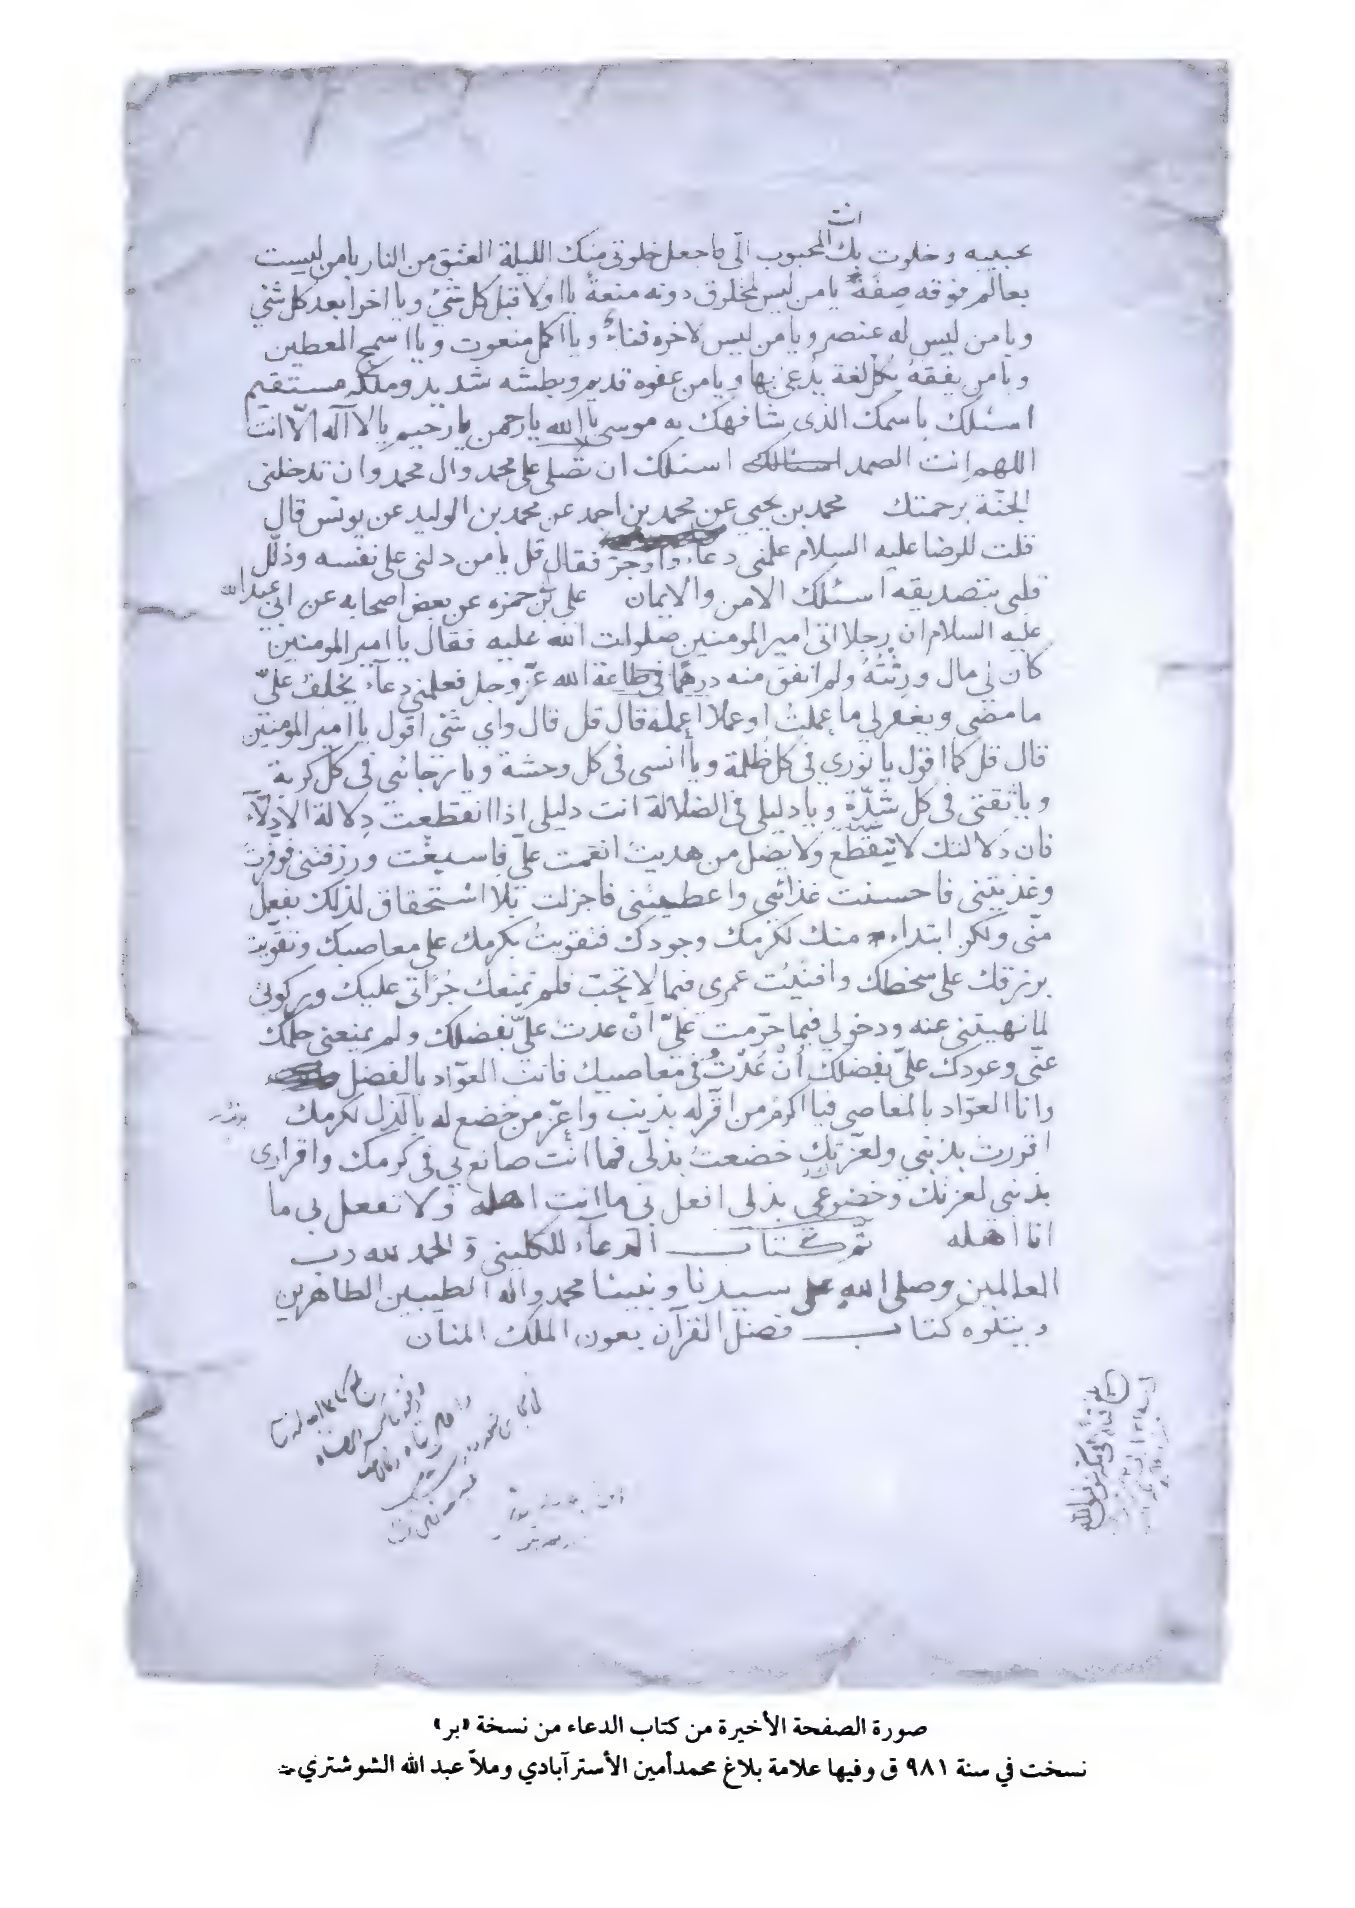 انت
بحبيبه وخلوت بك المحبوب الى فاجعل خلوتي منك الليلة العتق من النار يا من ليست
بعالم فوقه صفة يا من ليس لمخلوق دونه منعة يا اولا قبل كل شئ ويا اخرا بعد كل شئ
ويا من ليس له عنصر ويا من ليس لاخره فناء ويا اكمل منعوت ويا اسمح المعطين
ويا من يفقه بكل لغة يدعى بها ويا من عفوه قديم وبطشه شديد وملكه مستقيم
اسئلك باسمك الذى شافهك به موسى يا الله يا رحمن يا رحيم يا لا آله الّا انت
اللهم انت الصمد اسئلك ان تصلى على محمد وال محمد وان تدخلنى
الجنّة برحمتك محمد بن يحيي عن محمد بن احمد عن محمد بن الوليد عن يونس قال
قلت للرضا عليه السلام علمنى دعاء واوجز فقال قل يا من دلنى على نفسه وذلّل
قلبى بتصديقه اسئلك الامن والايمان على بن حمزه عن بعض اصحابه عن ابي عبد الله
عليه السلام ان رجلا اتى امير المومنين صلوات الله عليه فقال يا امير المومنين
كان لى مال ورثتُهُ ولم انفق منه درهمًا فى طاعة الله عزّ وجل فعلمنى دعآء يخلف علىّ
ما مضى ويغفر لى ما عملتُ او عملا اعمله قال قل قال واي شئ اقول يا امير المومنين
قال قل كما اقول يا نوري فى كل ظُلمة ويا انسى فى كل وحشة ويا رجائي فى كل كربة
ويا ثقتى فى كل شدّة ويا دليلى فى الضلالة انت دليلى اذا انقطعت دِلالة الادلّاء
فان دَلالتك لا ينقطع ولا يضل من هديت انعمت علىّ فاسبغت ورزقتنى فوفّرت
وغذيتنى فاحسنت غذائي واعطيتنى فاجزلت بلا استحقاق لذلك بفعل
منّى ولكن ابتداء منك لكرمك وجودك فتقويتُ بكرمك على معاصيك وتقويت
برزقك على سخطك وافنيت عمرى فيما لا تحبّ فلم تمنعك جُرأتى عليك وركوبى
لما نهيتنى عنه ودخولى فيما حرّمت علىّ اَنْ عدت علىّ بفضلك ولم يمنعنى حلمك
عنّى وعودك علىّ بفضلك اَنْ عُدْتُ فى معاصيك فانت العوّاد بالفضل
وانا العوّاد بالمعاصى فيا اكرم من اقرّ له بذنب واعزّ من خضع له بالذل لكرمك
اقررت بذنبى ولعزتك خضعتُ بذلّى فما انت صانع بى فى كرمك واقرارى
بذنبى لعزتك وخضوعى بذلى افعل بى ما انت اهله ولا تفعل بى ما
انا اهله تم كتاب الدعآء للكلينى و الحمد لله رب
العالمين وصلى الله على سيدنا ونبينا محمد واله الطيبين الطاهرين
ويتلوه كتاب فضل القرآن بعون الملك المنان
صورة الصفحة الأخيرة من كتاب الدعاء من نسخة «بر»
نسخت في سنة ٩٨١ ق وفيها علامة بلاغ محمدأمين الأسترآبادي وملاّ عبد الله الشوشتري